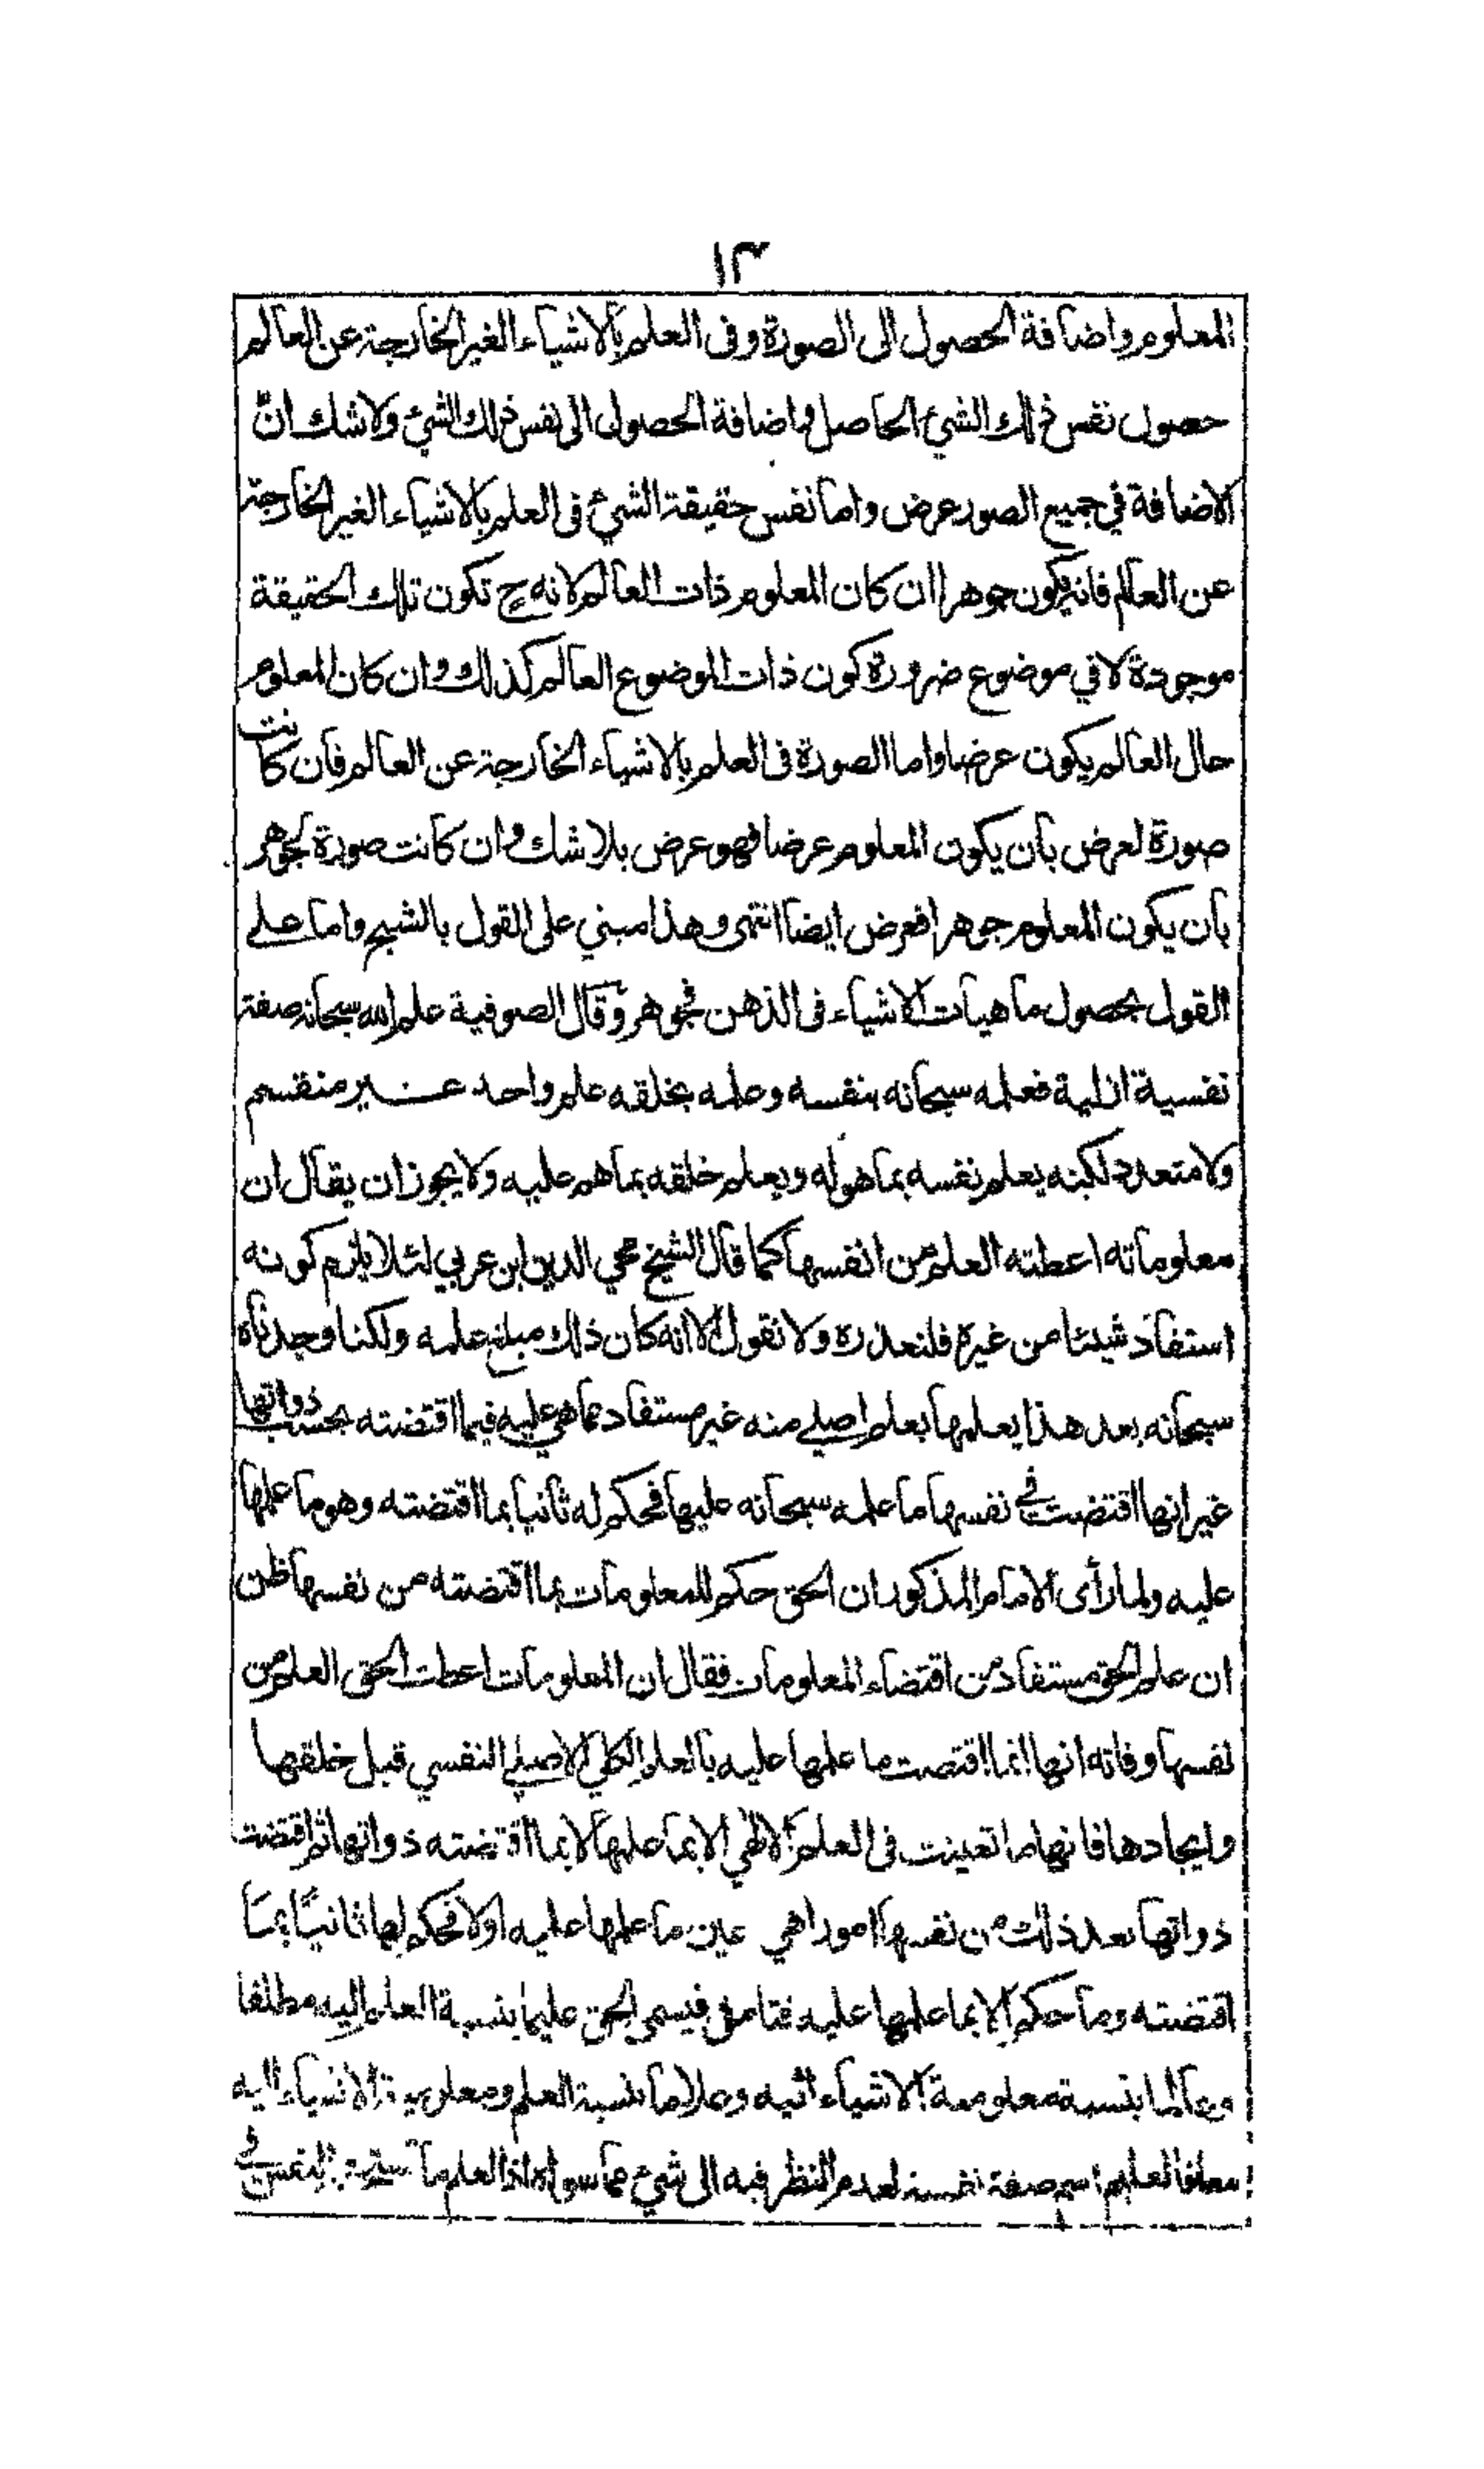 ١٣
المعلوم واضافة الحصول الى الصورة وفى العلم بالاشياء الغير الخارجة عن العالم
حصول نفس ذلك الشيئ الحاصل واضافة الحصول الى نفس ذلك الشيئ ولا شك انّ
الاضافة في جميع الصور عرض واما نفس حقيقة الشيئ فى العلم بالاشياء الغير الخارجة
عن العالم فانه يكون جوهرا ان كان المعلوم ذات العالم لانه ح تكون تلك الحقيقة
موجودة لا في موضوع ضرورة كون ذات الموضوع العالم كذلك وان كان المعلوم
حال العالم يكون عرضا واما الصورة فى العلم بالاشياء الخارجة عن العالم فان كانت
صورة لعرض بان يكون المعلوم عرضا فهو عرض بلا شك وان كانت صورة لجوهر
بان يكون المعلوم جوهرا فعرض ايضا انتهى وهذا مبني على القول بالشبح واما على
القول بحصول ماهيات الاشياء فى الذهن فجوهر وقال الصوفية علم الله سبحانه صفة
نفسية ازلية فعلمه سبحانه بنفسه وعلمه بخلقه علم واحد غير منقسم
ولا متعدد لكنه يعلم نفسه بما هو له ويعلم خلقه بما هم عليه ولا يجوز ان يقال ان
معلوماته اعطته العلم من انفسها كما قال الشيخ محي الدين ابن عربي لئلا يلزم كونه
استفاد شيئا من غيره فلنعذره ولا نقول الا انه كان ذلك مبلغ علمه ولكنا وجدناه
سبحانه بعد هذا يعلمها بعلم اصلي منه غير مستفاد مما هي عليه فيما اقتضته بحسب ذواتها
غير انها اقتضت في نفسها ما علمه سبحانه عليها فحكم له ثانيا بما اقتضته وهو ما علمها
عليه ولما رأى الامام المذكور ان الحق حكم للمعلومات بما اقتضته من نفسها ظن
ان علم الحق مستفاد من اقتضاء المعلومات فقال ان المعلومات اعطت الحق العلم من
نفسها وفاته انها انما اقتضت ما علمها عليه بالعلم الكلي الاصلي النفسي قبل خلقها
وايجادها فانها ما تعينت فى العلم الالهي الا بما علمها لا بما اقتضته ذواتها ثم اقتضت
ذواتها بعد ذلك من نفسها امورا هي عين ما علمها عليه اولا فحكم لها ثانيًا بما
اقتضته وما حكم الا بما علمها عليه فتامل فيسمى الحق عليما بنسبة العلم اليه مطلقا
وعالما بنسبة معلومية الاشياء اليه وعلاما بنسبة العلم ومعلومية الاشياء اليه
معا فالعليم اسم صفة نفسية لعدم النظر فيه الى شيئ مما سواه اذ العلم ما النفس في